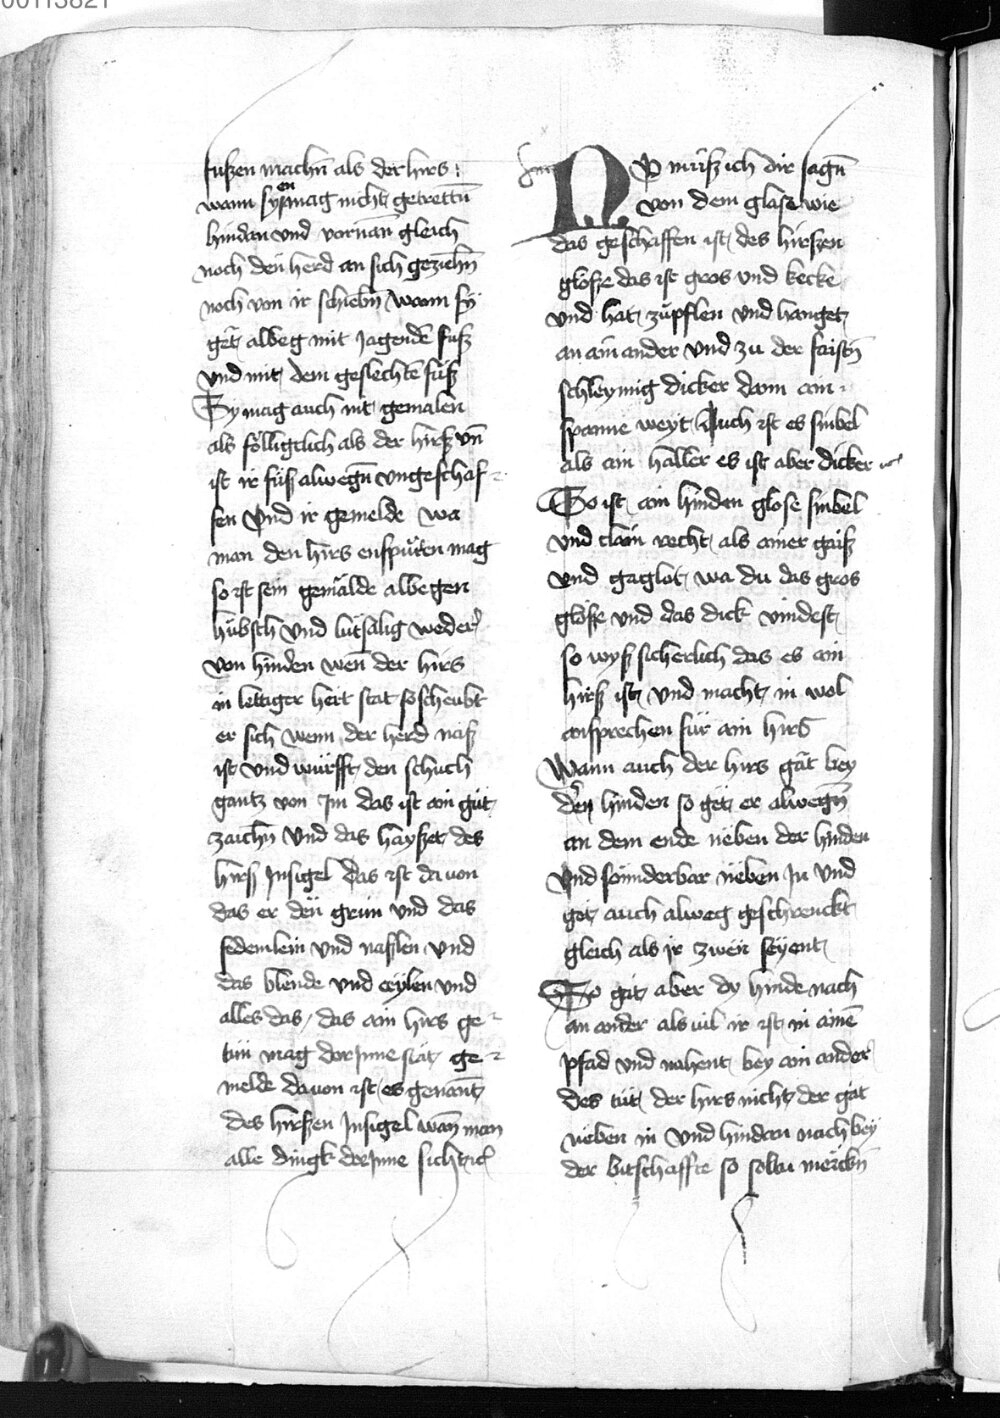 00113821
fuszen machn̄ als der hirs :
wann sy en mag nicht getrettn̄
hindan und vornan̄ gleich
noch den herd an sich geziehn̄
noch von ir schiebn̄ wann sy
get albeg mit jagendē fusz
und mit dem geslechtē fusz
Sy mag auch nit gemalen
als föllигclich als der hirsz vn̄
ist ir fusz alwegn̄ ungeschaf-
fen Und ir gemelde wa
man den hirs enspürēn mag
so ist sein gemälde albegen
hübsch und lutsalig weder
von hinden wen der hirs
in lettiger hert stat so scheubt
er sich wenn der herd nasz
ist und würfft den schuch
gantz von Im das ist ain gut
zaichn̄ Und das hayszet des
hirsz Insigel das ist da von
das er den grim und das
fedemlein und naslen und
das blende und ceylen und
alles das, das ain hirs ge-
tun mag dor Inne stat ge-
melde davon ist es genant
des hirszen Insigel wan̄ man
alle dingk dor Inne sicht
NU musz ich dir sagn̄
von dem glase wie
das geschaffen ist des hirszen
glösze das ist gros und kecke
und hat zupflen und hanget
an ain ander und zu der faistn̄
schleymig dicker dann ain
spanne weyt Auch ist es sinbel
als ain haller es ist aber dicker
So ist ain hinden glose sinbel
und clain recht als ainer gaisz
und gaglot wa du das gros
glösze und das dick vindest
so wysz sicherlich das es ain
hirsz ist und macht in wol
ansprechen für ain hirs
Wann auch der hirs gat bey
den hinden so get er alwegn̄
an dem ende neben der hinden
Und sounderbar neben In und
get auch alweg geschrenckt
gleich als ir zwen seyent
So gat aber dy hinde nach
an ander als vil ir ist in ainē
pfad und nahent bey ain ander
des tut der hirs nicht der gat
neben in Und hindan nach bey
der bitschaffte so soltu mërckn̄